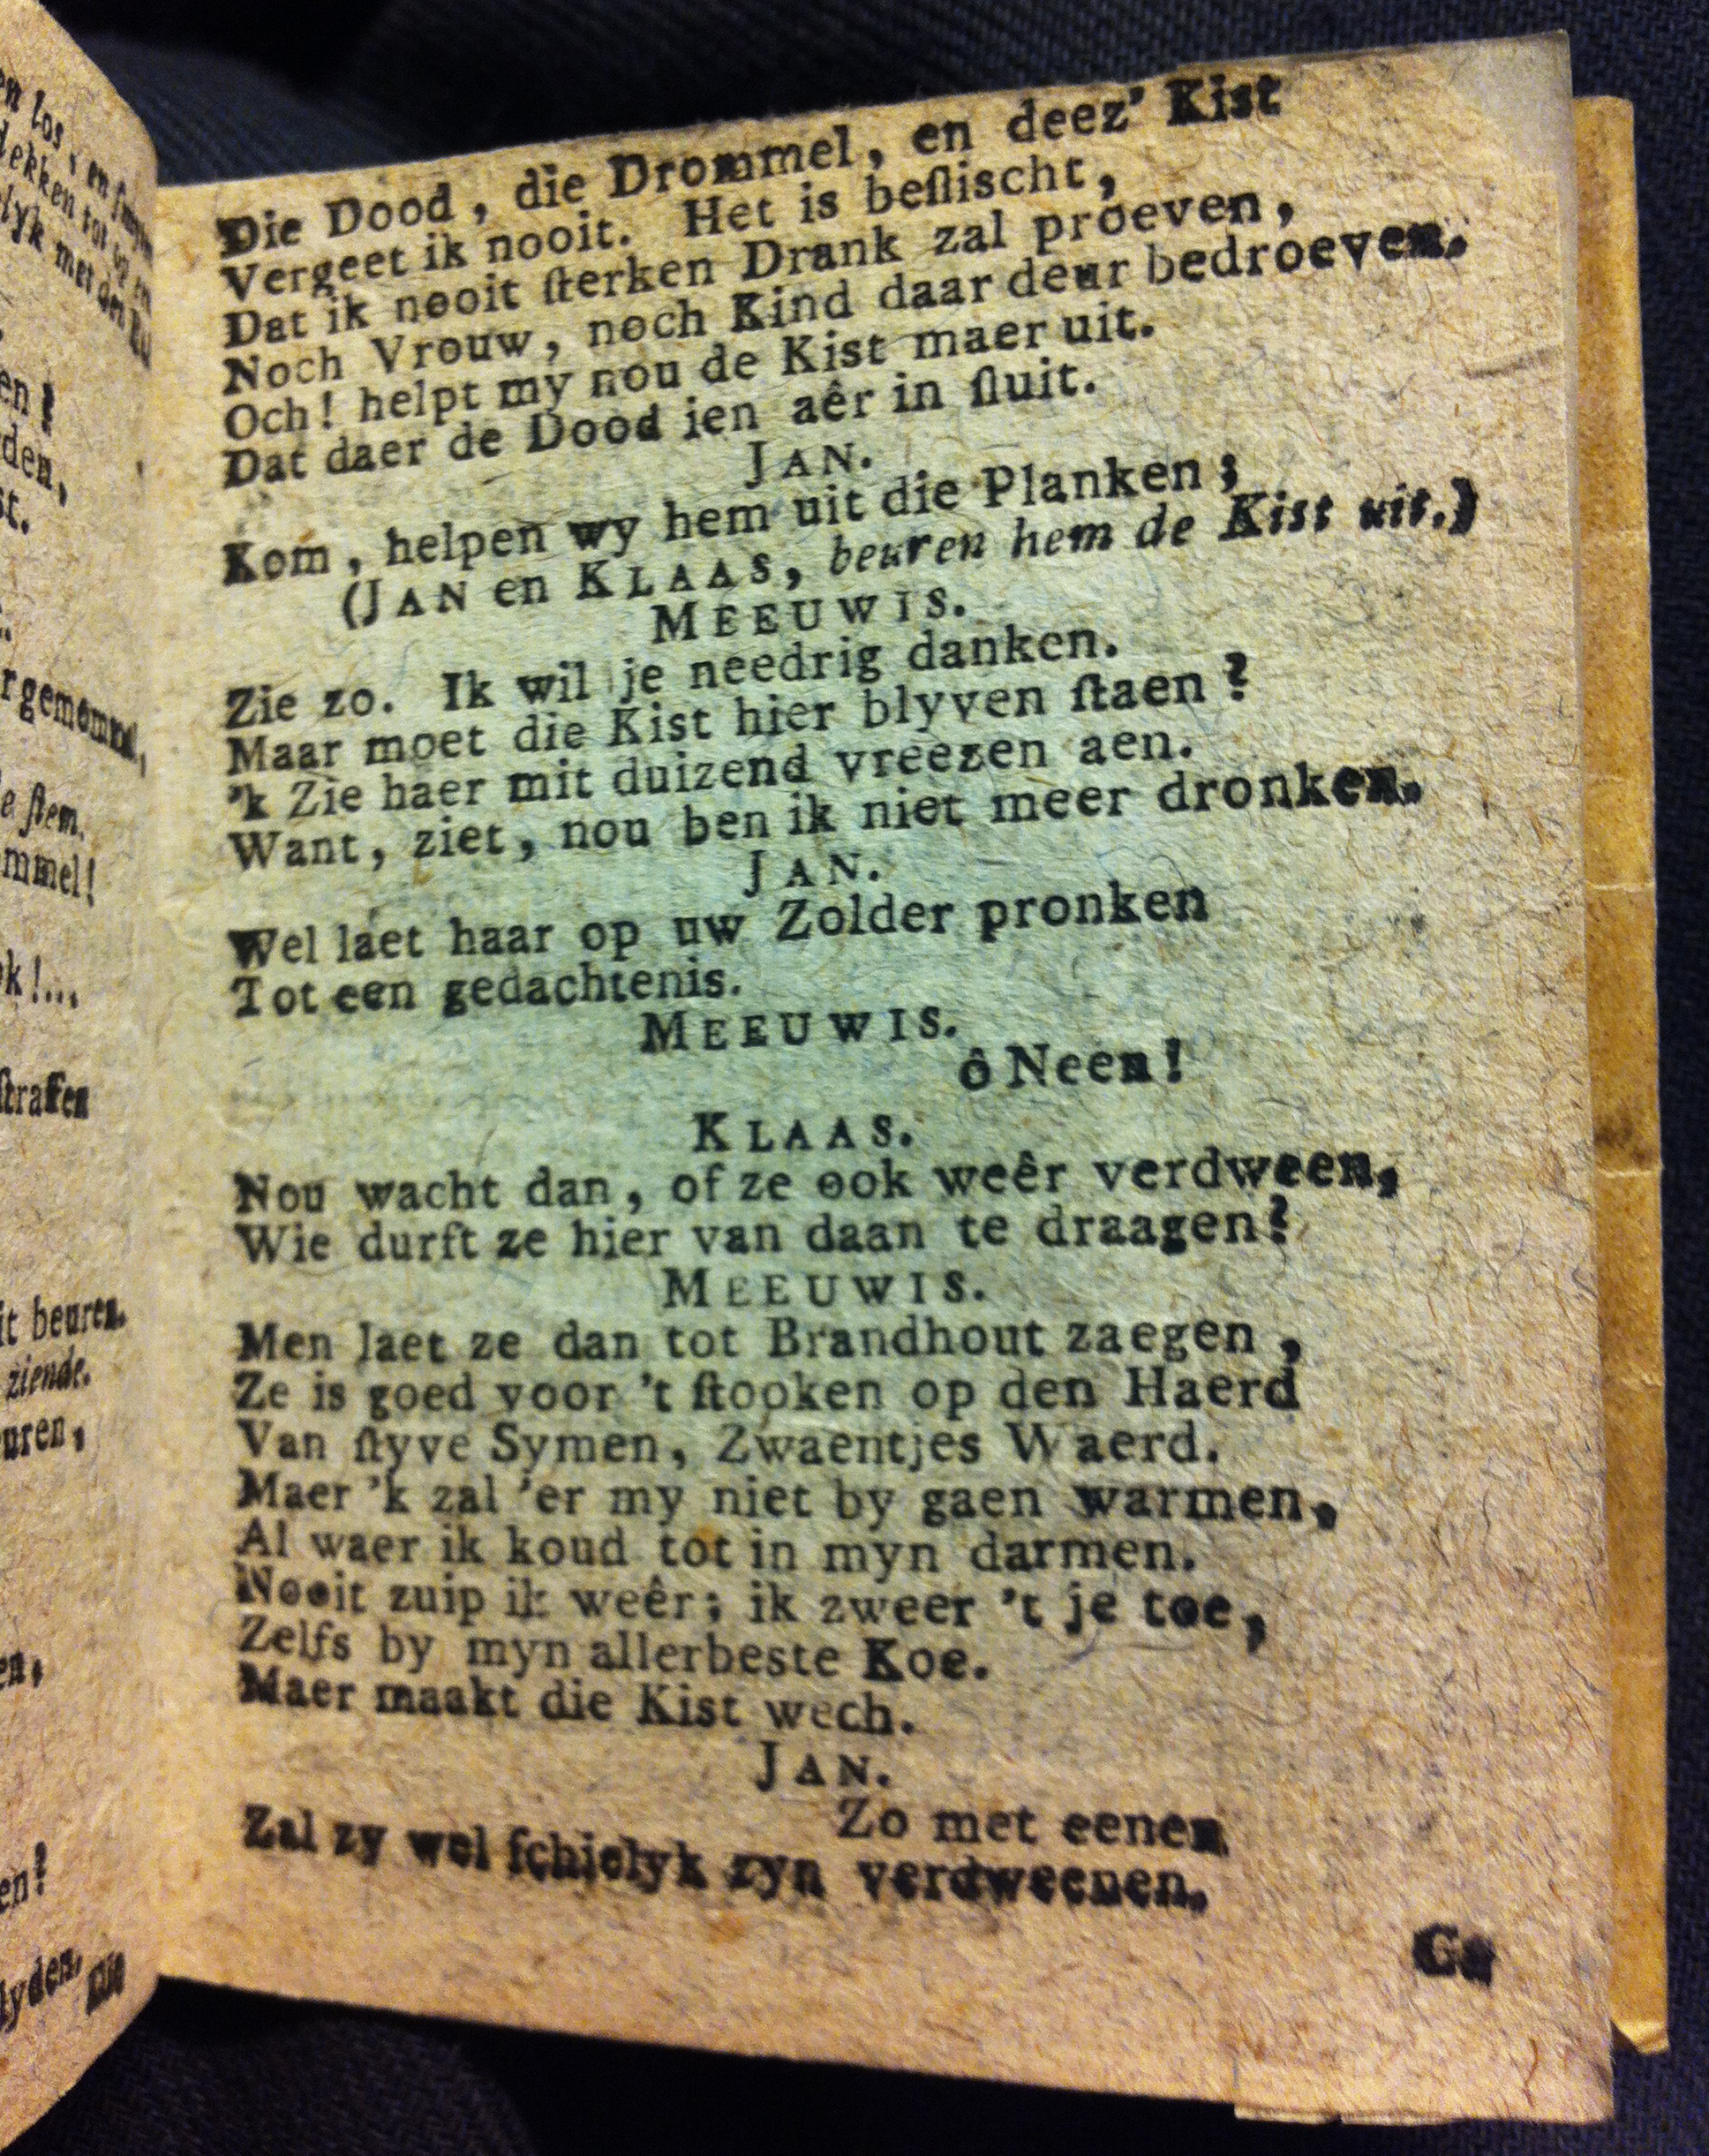 en los, en
dekken tot op en
lyk met den
en!
den,
st.
r gemommel,
e ſtem.
mmel!
k!...
ſtraffen
it beuren.
ziende.
uren,
en,
en?
lyden.
Die
Die Dood, die Drommel, en deez' Kist
Vergeet ik nooit. Het is beſlischt,
Dat ik nooit ſterken Drank zal proeven,
Noch Vrouw, noch Kind daar deur bedroeven.
Och! helpt my nou de Kist maer uit.
Dat daer de Dood ien aêr in ſluit.
JAN.
Kom, helpen wy hem uit die Planken;
(JAN en KLAAS, beuren hem de Kist uit.)
MEEUWIS.
Zie zo. Ik wil je needrig danken.
Maar moet die Kist hier blyven ſtaen?
'k Zie haer mit duizend vreezen aen.
Want, ziet, nou ben ik niet meer dronken.
JAN.
Wel laet haar op uw Zolder pronken
Tot een gedachtenis.
MEEUWIS.
ô Neen!
KLAAS.
Nou wacht dan, of ze ook weêr verdween,
Wie durft ze hier van daan te draagen?
MEEUWIS.
Men laet ze dan tot Brandhout zaegen,
Ze is goed voor 't ſtooken op den Haerd
Van ſtyve Symen, Zwaentjes Waerd.
Maer 'k zal 'er my niet by gaen warmen,
Al waer ik koud tot in myn darmen.
Nooit zuip ik weêr; ik zweer 't je toe,
Zelfs by myn allerbeste Koe.
Maer maakt die Kist wech.
JAN.
Zo met eenen
Zal zy wel ſchielyk zyn verdweenen.
Ga